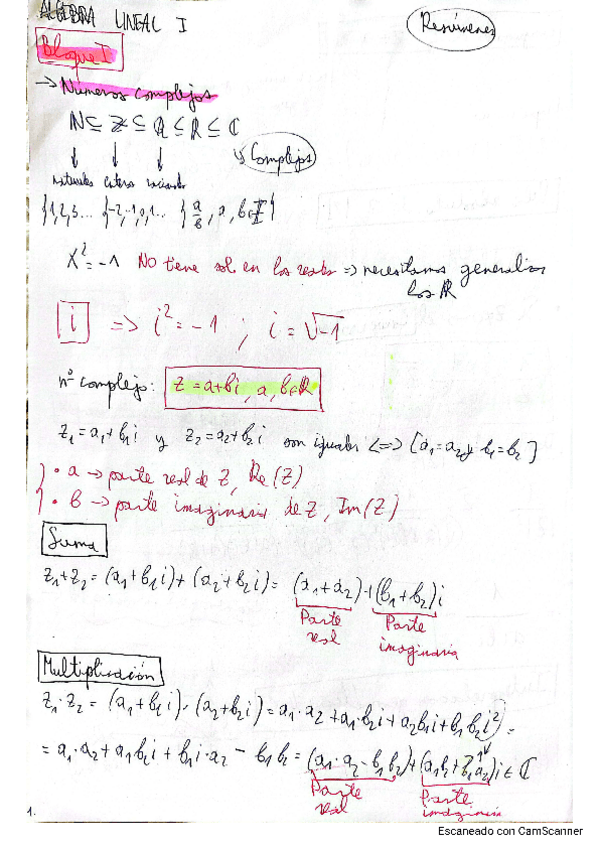 ÁLGEBRA LINEAL I
Resúmenes
Bloque I
→ Números complejos
ℕ ⊆ ℤ ⊆ ℚ ⊆ ℝ ⊆ ℂ
↳ Complejos
↓ ↓ ↓
naturales enteros racionales
{1,2,3... {-2,-1,0,1... {a/b, a, b∈ℤ}
X² = -1 No tiene sol en los reales ⇒ necesitamos generalizar
los ℝ
i ⇒ i² = -1 ; i = √-1
nº complejo: z = a+bi, a, b∈ℝ
z₁ = a₁+b₁i y z₂ = a₂+b₂i son iguales <=> [a₁=a₂ y b₁=b₂]
• a → parte real de z, Re(z)
• b → parte imaginaria de z, Im(z)
Suma
z₁+z₂ = (a₁+b₁i)+(a₂+b₂i) = (a₁+a₂)+(b₁+b₂)i
Parte real Parte imaginaria
Multiplicación
z₁·z₂ = (a₁+b₁i)·(a₂+b₂i) = a₁·a₂+a₁·b₂i+a₂b₁i+b₁b₂i² =
= a₁·a₂+a₁b₂i+b₁i·a₂ - b₁b₂ = (a₁·a₂-b₁b₂)+(a₁b₂+b₁a₂)i ∈ ℂ
Parte real Parte imaginaria
1.
Escaneado con CamScanner